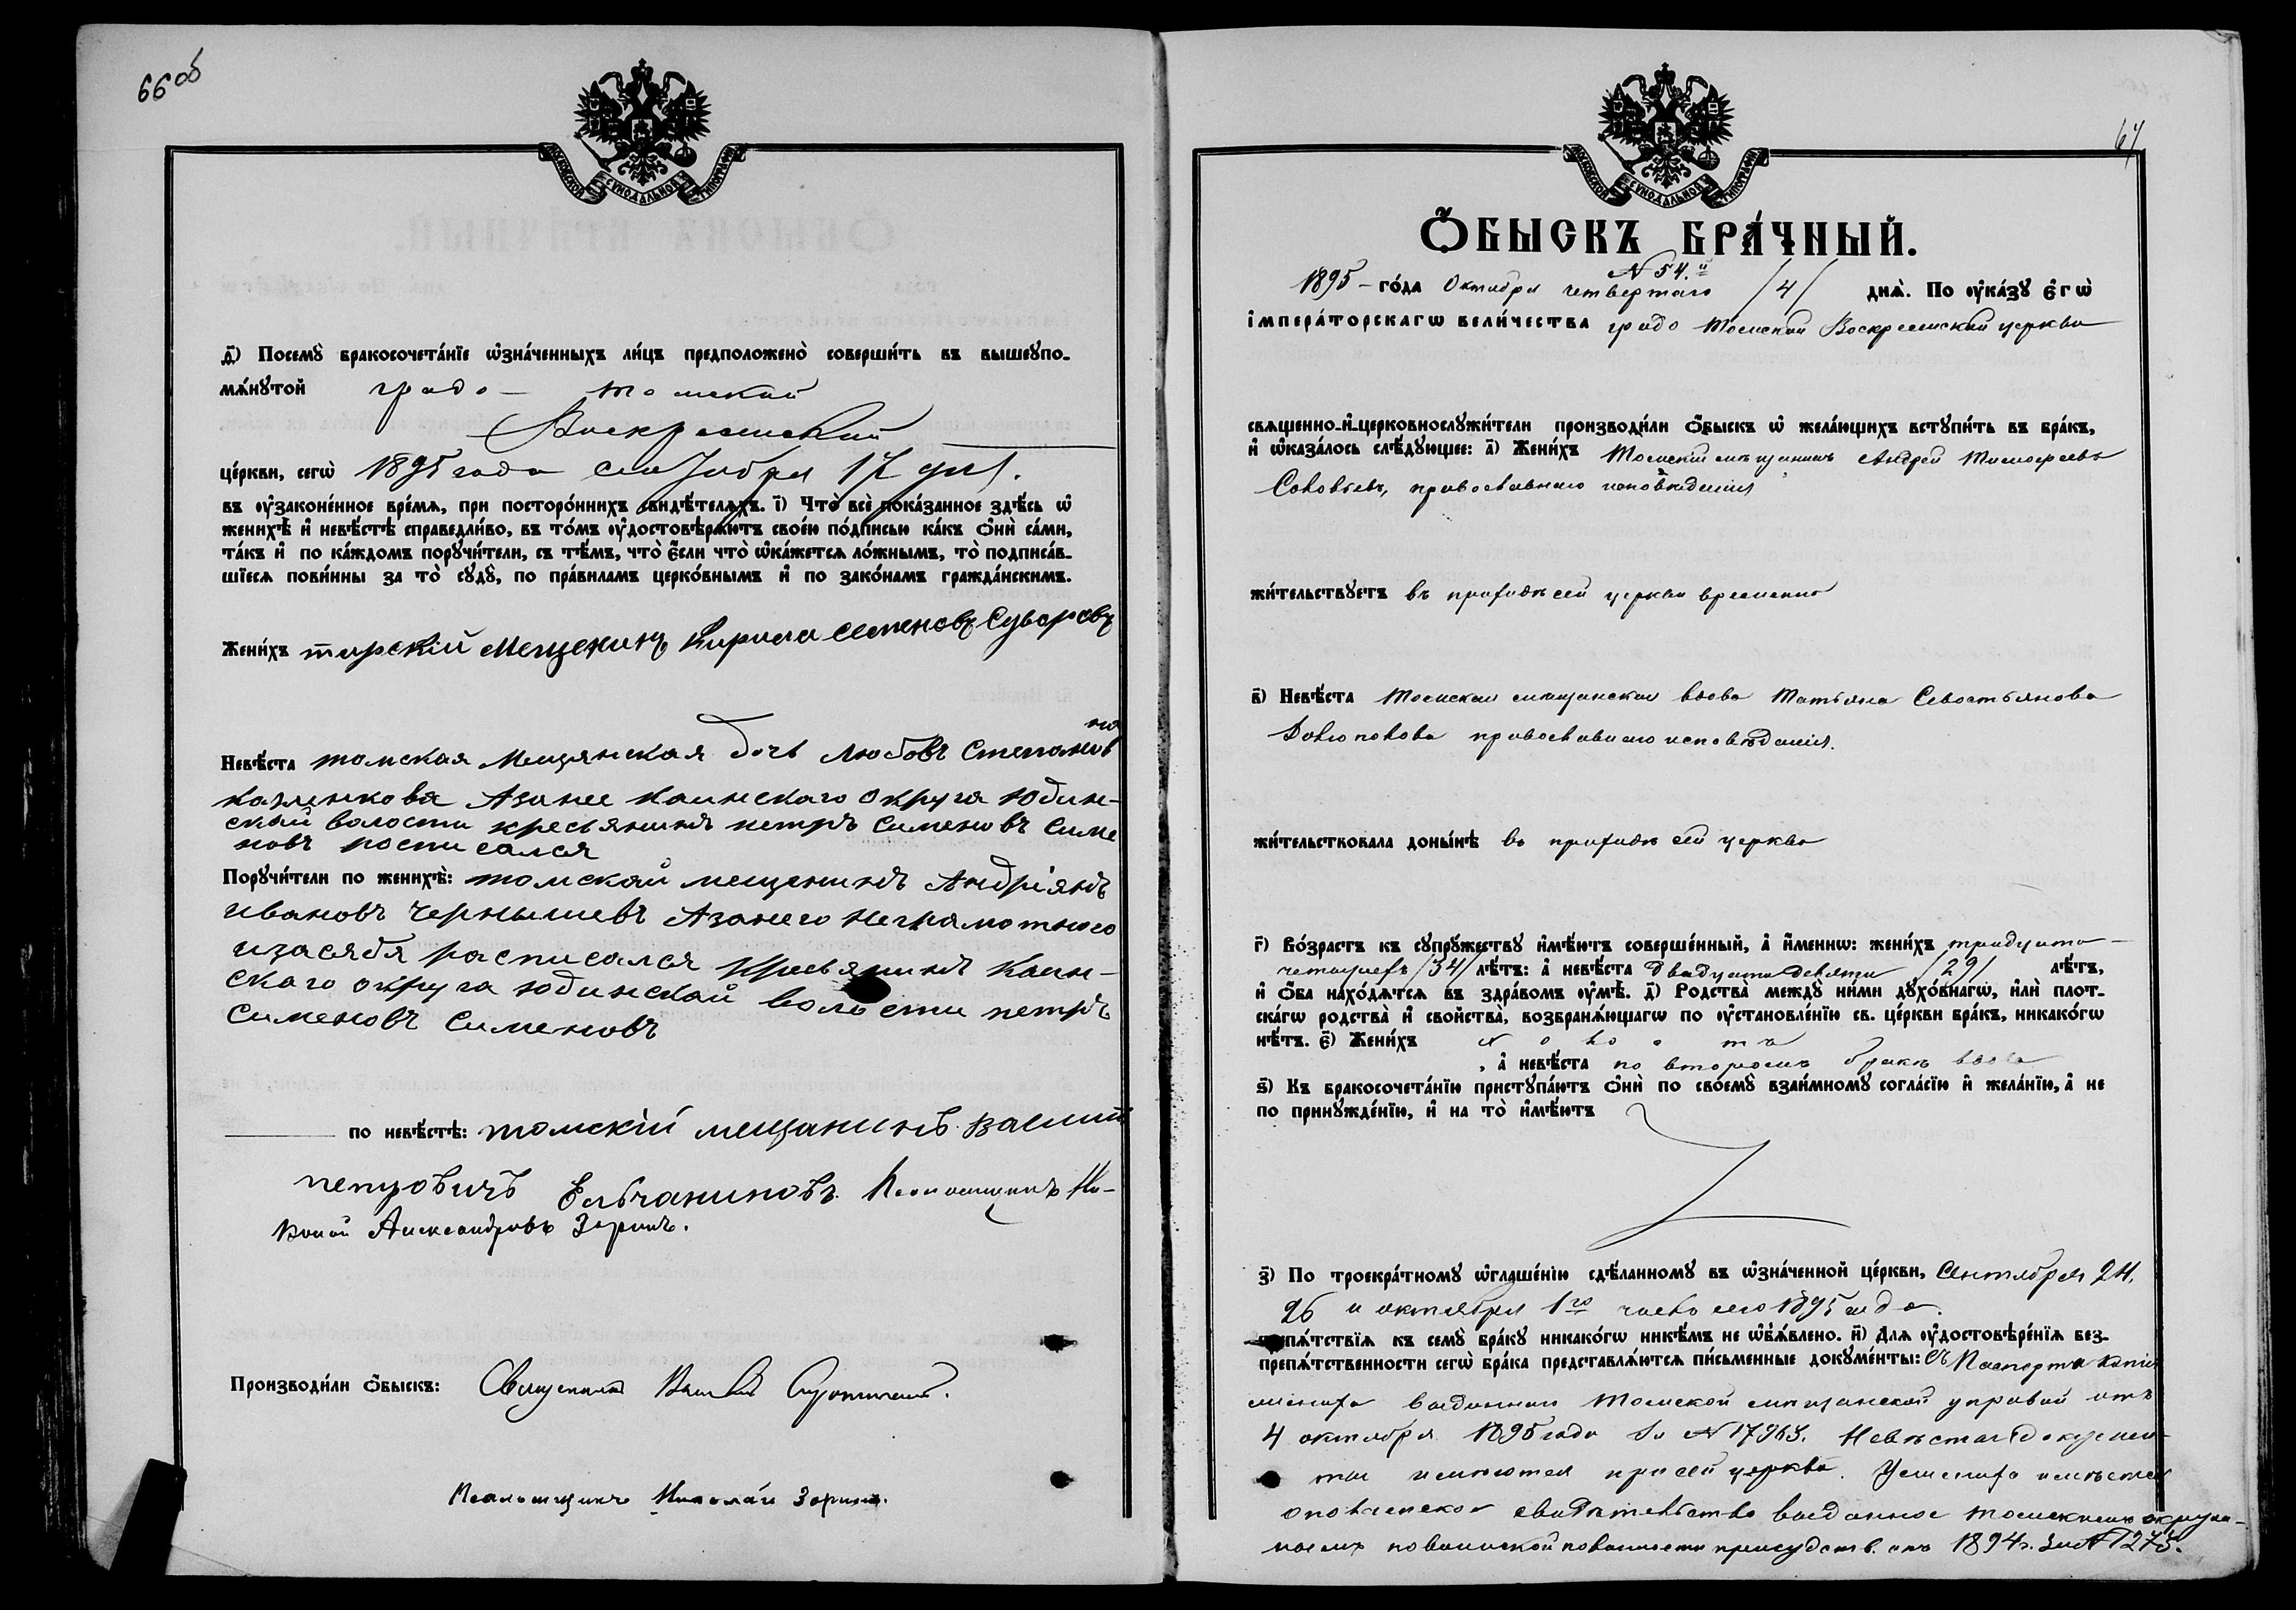 66 об
МОСКОВСКОЙ СУНОДАЛЬНОЙ ТИПОГРАФІИ
д҃і) Посемꙋ̀ бракосочета́нїе ѡ҆зна́ченныхъ ли́цъ предположено̀ соверши́ть въ вышеꙋпо-
мѧ́нꙋтой градо- Томской
Воскресенской
це́ркви, сегѡ̀ 1895 года сентября 17 дня.
въ ᲂу҆зако́ненное вре́мѧ, при посторо́ннихъ свидѣ́телѧхъ. і҃) Что̀ всѐ пока́занное здѣ́сь ѡ҆
женихѣ̀ и҆ невѣ́стѣ справедли́во, въ то́мъ ᲂу҆достовѣрѧ́ютъ свое́ю по́дписью ка́къ ѻ҆нѝ са́ми,
та́къ и҆ по ка́ждомъ порꙋчи́тели, съ тѣ́мъ, что̀ є҆́сли что̀ ѡ҆ка́жетсѧ ло́жнымъ, то̀ подписа́в-
шїесѧ пови́нны за то̀ сꙋдꙋ̀, по пра́виламъ церко́внымъ и҆ по зако́намъ гражда́нскимъ.
Жени́хъ Мещенинъ Кирила Семеновъ Суворовъ
Невѣ́ста томская Мещянская дочь Любовь Степановна
Азанее каинскаго округа юдин-
ской волости кресьянинъ петръ Сименовъ Симе
новъ росписался
Порꙋчи́тели по женихѣ̀: томской мещенинъ Андріянъ
Ивановъ Чернышевъ Азанего неграмотного
изасябя расписался кресьянинъ Каин-
скаго округа юдинской волости петръ
Сименовъ Сименовъ
по невѣ́стѣ: томскій мещанинъ Василій
петровичъ Ельчаниновъ. Псаломщикъ Ни-
колай Александровъ Заринъ.
Производи́ли ѻ҆́быскъ: Священникъ
Псаломщикъ Николай Заринъ.
67
МОСКОВСКОЙ СУНОДАЛЬНОЙ ТИПОГРАФІИ
Ѻ҆́БЫСКЪ БРА́ЧНЫЙ.
№ 54.й
1895 - го́да Октября четвертаго /4/ днѧ̀. По ᲂу҆ка́зꙋ є҆гѡ̀
і҆мпера́торскагѡ вели́чества градо Томской Воскресенской церкви
свѧщенно-и҆-церковнослꙋжи́тели производи́ли ѻ҆́быскъ ѡ҆ жела́ющихъ встꙋпи́ть въ бра́къ,
и҆ ѡ҆каза́лось слѣ́дꙋющее: а҃) Жени́хъ Томскій мѣщанинъ Андрей Тимофеевъ
Соловьевъ, православнаго исповѣданія
жи́тельствꙋетъ въ приходѣ сей церкви временно
в҃) Невѣ́ста Томская мѣщанская вдова Татьяна Севостьянова
православнаго исповѣданія.
жи́тельствовала доны́нѣ въ приходѣ сей церкви
г҃) Во́зрастъ къ сꙋпрꙋ́жествꙋ и҆мѣ́ютъ соверше́нный, а҆ и҆́меннѡ: жени́хъ тридцати-
четырехъ /34/ лѣ́тъ: а҆ невѣ́ста двадцати девяти /29/ лѣ́тъ,
и҆ ѻ҆́ба нахо́дѧтсѧ въ здра́вомъ ᲂу҆мѣ̀. д҃) Родства̀ междꙋ̀ ни́ми дꙋхо́внагѡ, и҆лѝ плот-
ска́гѡ родства̀ и҆ сво́йства̀, возбранѧ́ющагѡ по ᲂу҆становле́нїю св. це́ркви бра́къ, никако́гѡ
нѣ́тъ. є҃) Жени́хъ холостъ
, а҆ невѣ́ста по второмъ бракѣ вдова
ѕ҃) Къ бракосочета́нїю пристꙋпа́ютъ ѻ҆нѝ по своемꙋ̀ взаи́мномꙋ согла́сїю и҆ жела́нїю, а҆ не
по принꙋжде́нїю, и҆ на то̀ и҆мѣ́ютъ
з҃) По троекра́тномꙋ ѡ҆глаше́нїю сдѣ́ланномꙋ въ ѡ҆зна́ченной це́ркви, Сентября 24,
26 и октября 1го числа сего 1895 года.
препѧ́тствїѧ къ семꙋ̀ бра́кꙋ никако́гѡ никѣ́мъ не ѡ҆бъѧ́влено. и҃) Для ᲂу҆достовѣре́нїѧ без-
препѧ́тственности сегѡ̀ бра́ка представлѧ́ютсѧ пи́сьменные докꙋме́нты: Съ Паспорта копія
жениха выданнаго Томской мѣщанской управой отъ
4 октября 1895 года за № 17963. Невѣсты докумен-
ты имѣются при сей церкви. У жениха имѣется
ополченское свидѣтельство выданное Томскимъ окруж-
нымъ по воинской повинности присудств. отъ 1894 г. за № 1275.